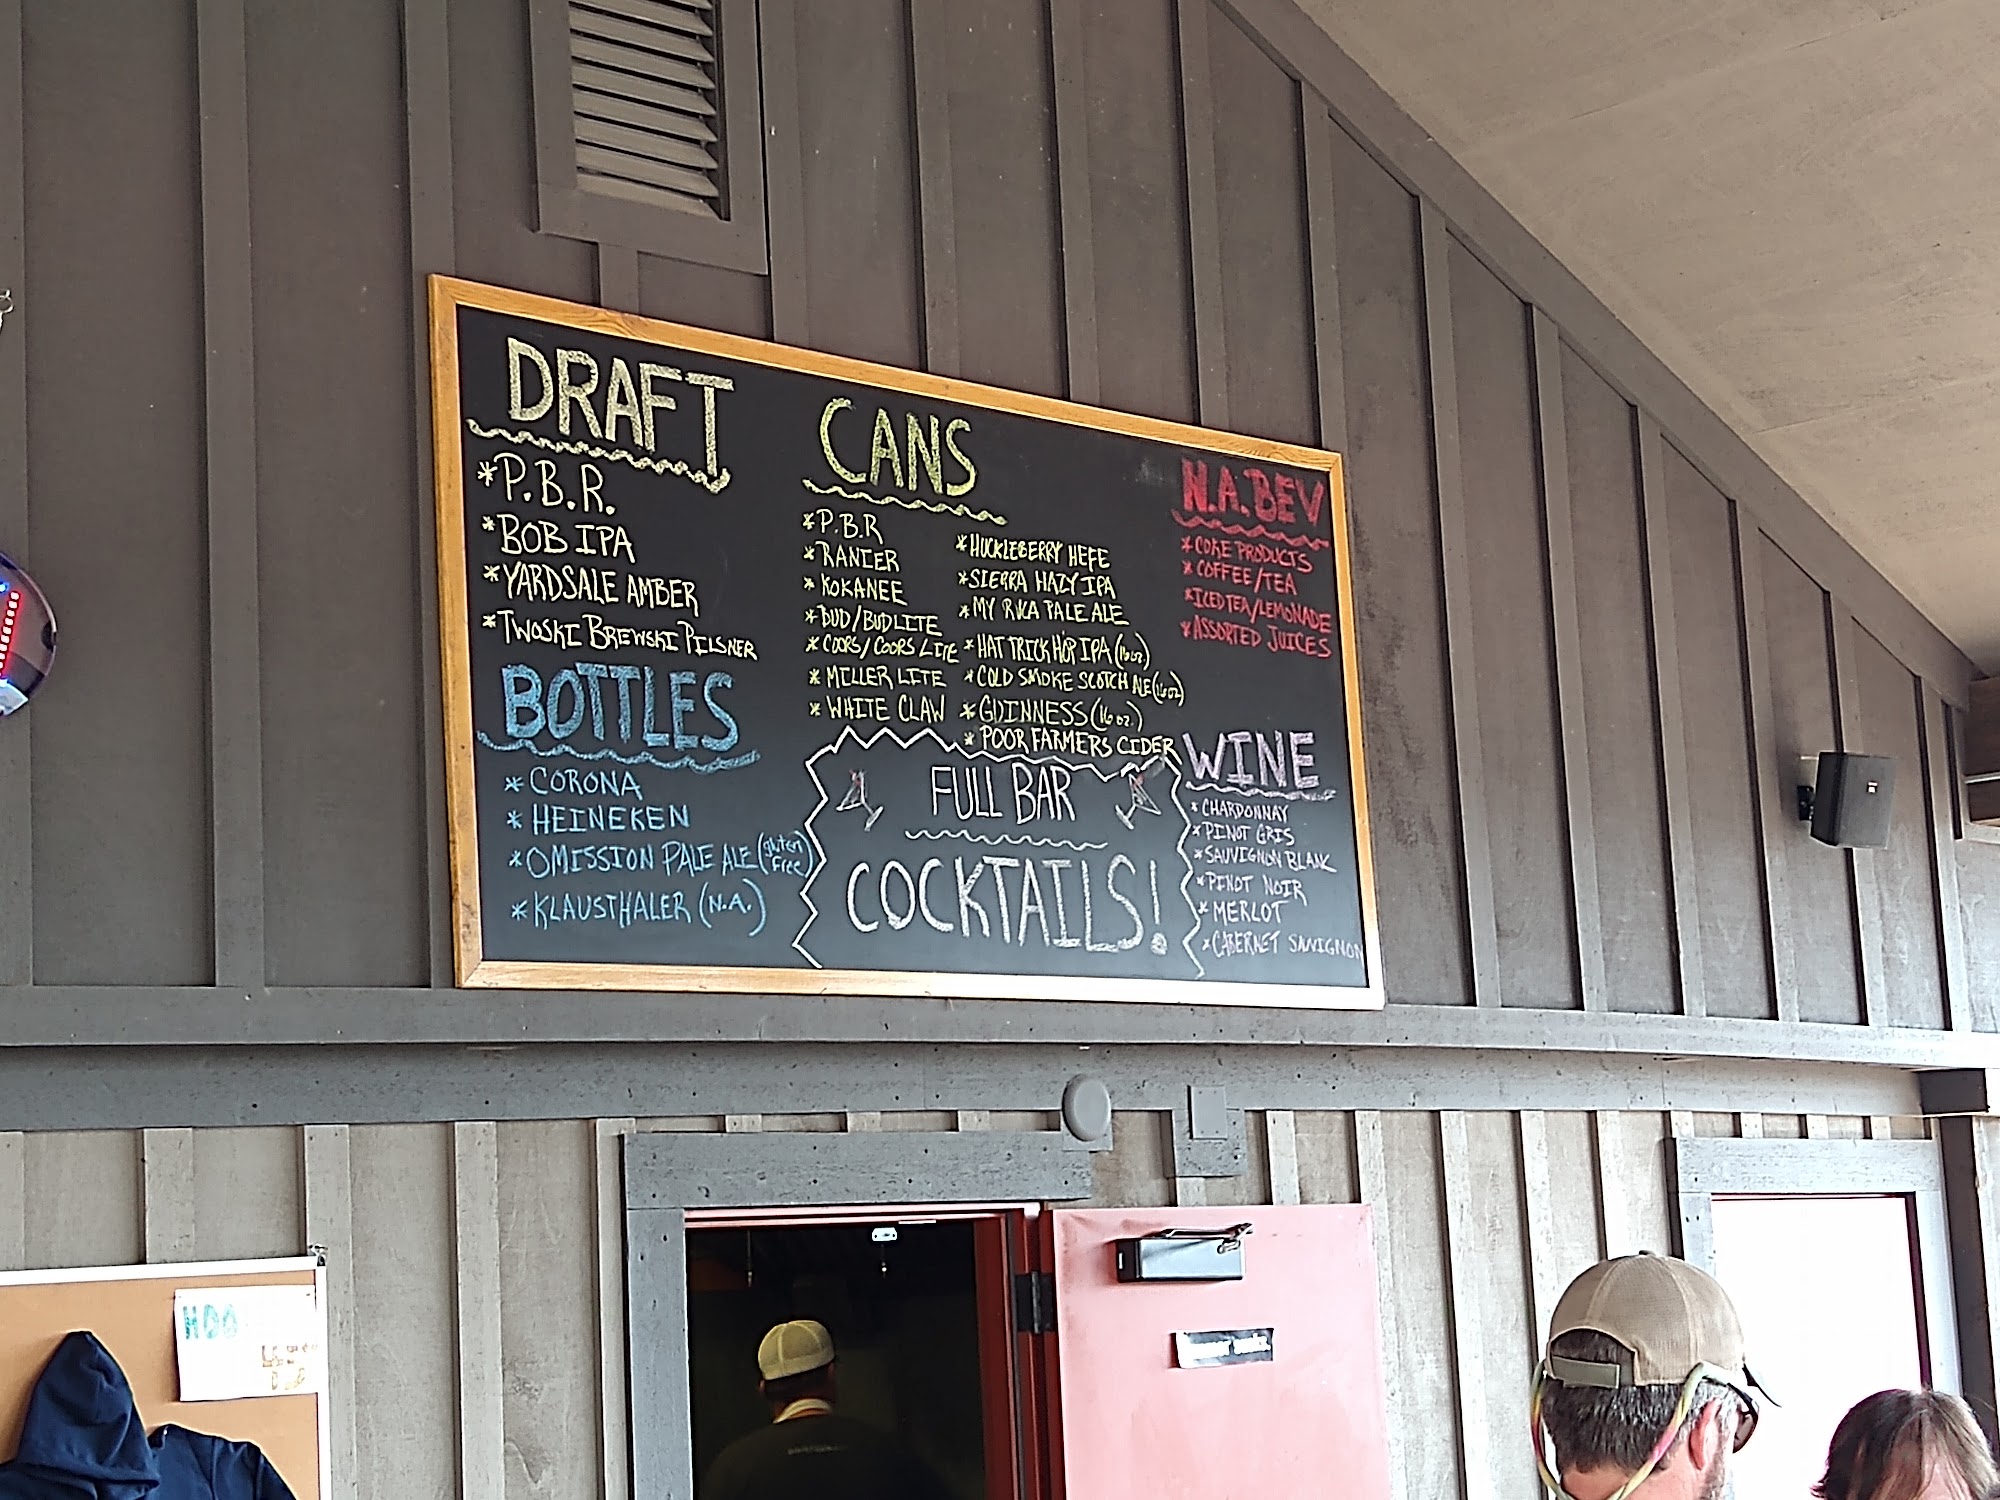 DRAFT
*P.B.R.
*BOB IPA
*YARDSALE AMBER
*TWOSKI BREWSKI PILSNER
BOTTLES
* CORONA
* HEINEKEN
*OMISSION PALE ALE (gluten free)
*KLAUSTHALER (N.A.)
CANS
*P.B.R
*RANIER
*KOKANEE
*BUD/BUDLITE
*COORS/COORS LITE
*MILLER LITE
*WHITE CLAW
*HUCKLEBERRY HEFE
*SIERRA HAZY IPA
*MY RUCA PALE ALE
*HAT TRICK HOP IPA (16oz.)
*COLD SMOKE SCOTCH ALE (16oz)
*GUINNESS (16 oz.)
* POOR FARMERS CIDER
FULL BAR
COCKTAILS!
N.A. BEV
*COKE PRODUCTS
*COFFEE/TEA
*ICED TEA/LEMONADE
*ASSORTED JUICES
WINE
*CHARDONNAY
*PINOT GRIS
*SAUVIGNON BLANK
*PINOT NOIR
*MERLOT
*CABERNET SAUVIGNON